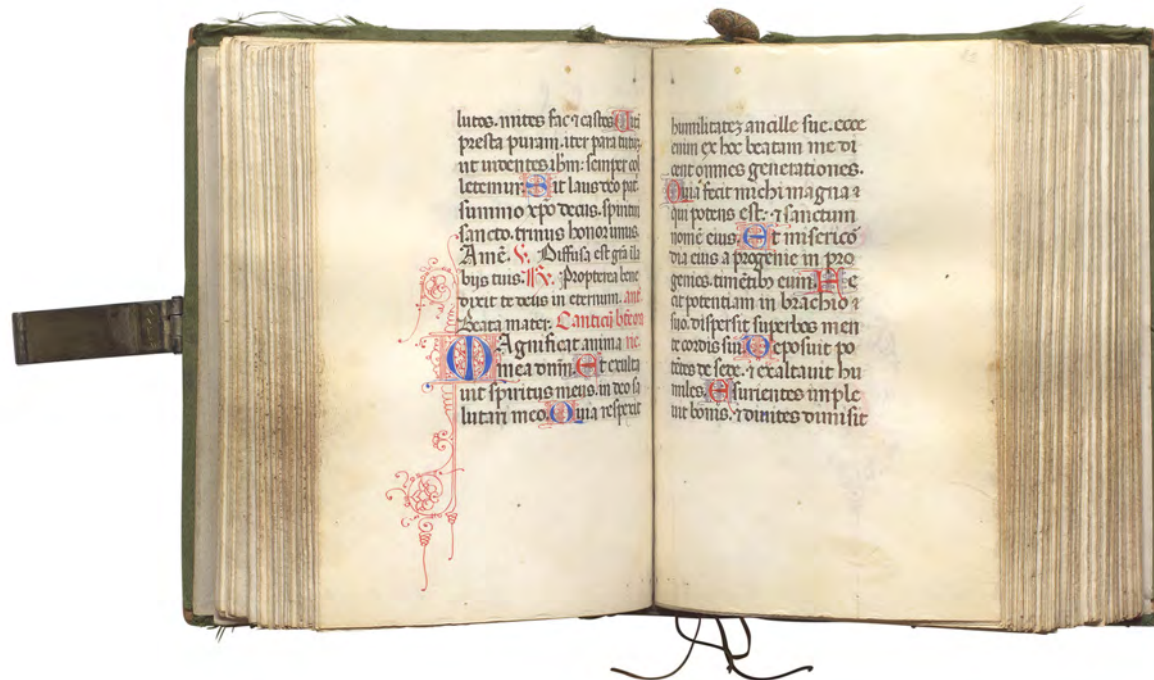 lutos. mites fac ⁊ castos Uitā
presta puram. iter para tutuꝫ
ut uidentes ihm̄: semper col
letemur. Sit laus deo pat̄.
summo xp̄o decus. spiritui
sancto. trinus honor unus.
Amē. ℣. Diffusa est gr̄a ī la
bijs tuis. ℟. Propterea bene
dixit te deus in eternum. an̄.
Beata mater. Canticū bt̄e ma
Magnificat anima rie.
mea dn̄m. Et exulta
uit spiritus meus. in deo sa
lutari meo. Quia respexit
humilitateꝫ ancille sue. ecce
enim ex hoc beatam me di
cent omnes generationes.
Quia fecit michi magna ⁊
qui potens est. ⁊ sanctum
nomē eius. Et misericō
dia eius a progenie in pro
genies. timētibꝫ eum. Fe
cit potentiam in brachio ⁊
suo. dispersit superbos men
te cordis sui. Deposuit po
tētes de sede. ⁊ exaltauit hu
miles. Esurientes imple
uit bonis. ⁊ diuites dimisit